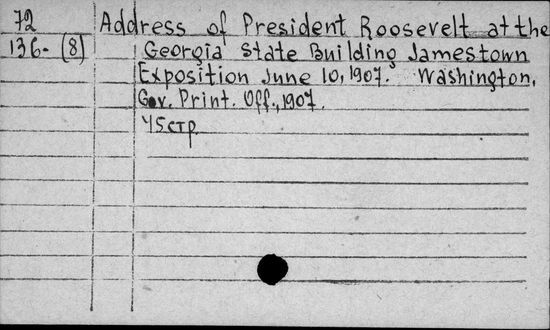 72 Address of President Roosevelt at the
136-(8) Georgia State Building Jamestown
Exposition June 10, 1907. Washington,
Gov. Print. Off., 1907.
45 стр.